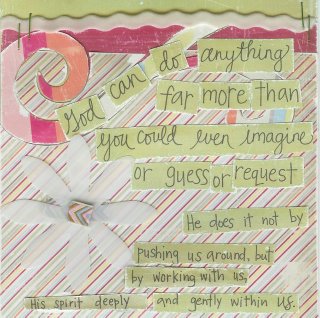 God can do anything
far more than
you could ever imagine
or guess or request
He does it not by
pushing us around, but
by working with us,
His spirit deeply and gently within us.